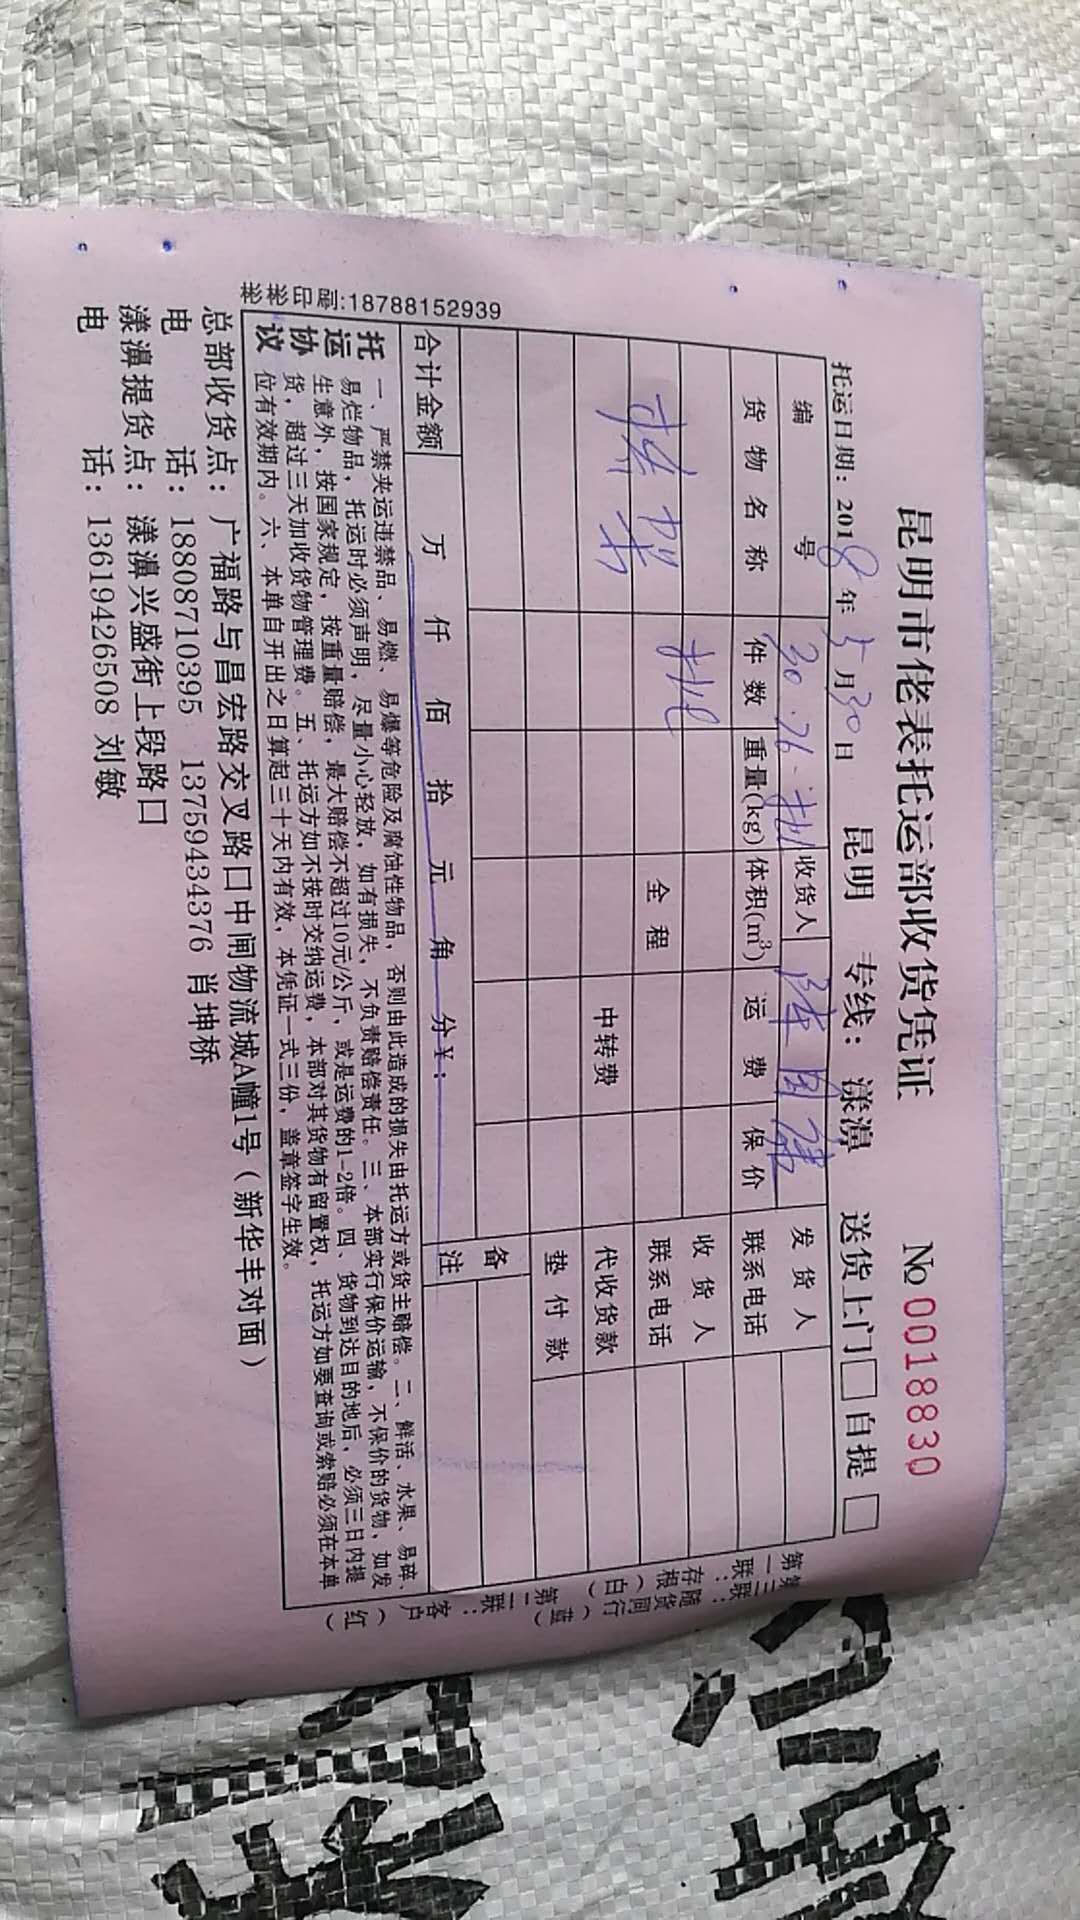 昆明市佬表托运部收货凭证 No 0018830
托运日期：2018年5月30日 昆明 专线：漾濞 送货上门□ 自提□
编号 30·26·批 收货人 陈国 发货人
货物名称 件数 重量(kg) 体积(m³) 运费 保价 联系电话
批 收货人
桥架 全程 联系电话
中转费 代收货款
垫付款
备注
合计金额 万 仟 佰 拾 元 角 分￥：
托运协议
一、严禁夹运违禁品、易燃、易爆等危险及腐蚀性物品，否则由此造成的损失由托运方或货主赔偿。二、鲜活、水果、易碎、
易烂物品，托运时必须声明，尽量小心轻放，如有损失，不负责赔偿责任。三、本部实行保价运输，不保价的货物，如发
生意外，按国家规定，按重量赔偿，最大赔偿不超过10元/公斤，或是运费的1-2倍。四、货物到达目的地后，必须三日内提
货，超过三天加收货物管理费。五、托运方如不按时交纳运费，本部对其货物有留置权，托运方如要查询或索赔必须在本单
位有效期内。六、本单自开出之日算起三十天内有效，本凭证一式三份，盖章签字生效。
总部收货点：广福路与昌宏路交叉路口中闸物流城A幢1号（新华丰对面）
电话：18808710395 13759434376 肖坤桥
漾濞提货点：漾濞兴盛街上段路口
电话：13619426508 刘敏
彬彬印刷:18788152939
第一联：存根（白） 第二联：客户（红）
第三联：随货同行（蓝）